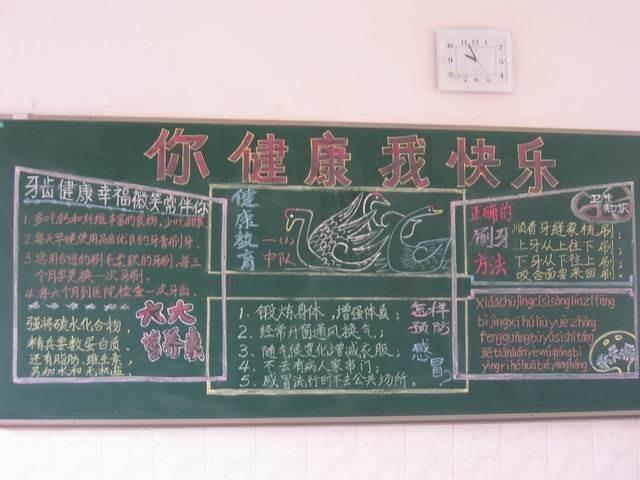 你健康我快乐
牙齿健康 幸福微笑常伴你
1. 多吃钙和纤维丰富的食物,少吃甜食.
2. 每天早晚使用品质优良的牙膏刷牙.
3. 选用合适的刷毛柔软的牙刷,每三
个月要更换一次牙刷.
4. 每六个月到医院检查一次牙齿.
强将碳水化合物,
精兵要数蛋白质.
还有脂肪.维生素
六大
营养素
健康教育
一(
中队
1、锻炼身体,增强体质;
2、经常开窗通风换气;
3、随气候变化增减衣服;
4、不去有病人家串门;
5、感冒流行时不去公共场所。
怎样
预防
感冒?
正确的
刷牙
方法
卫生
知识
顺着牙缝来梳刷;
上牙从上往下刷;
下牙从下往上刷;
咬合面要来回刷;
xiǎochǔjìngcísìsònglínzǐfāng
bì jìngxī hú liù yuè zhōng
fēngguāngbùyǔsìshítóng
jiē tiān lián yè wú qióng bì
yìng rì hé huā bié yàng hóng